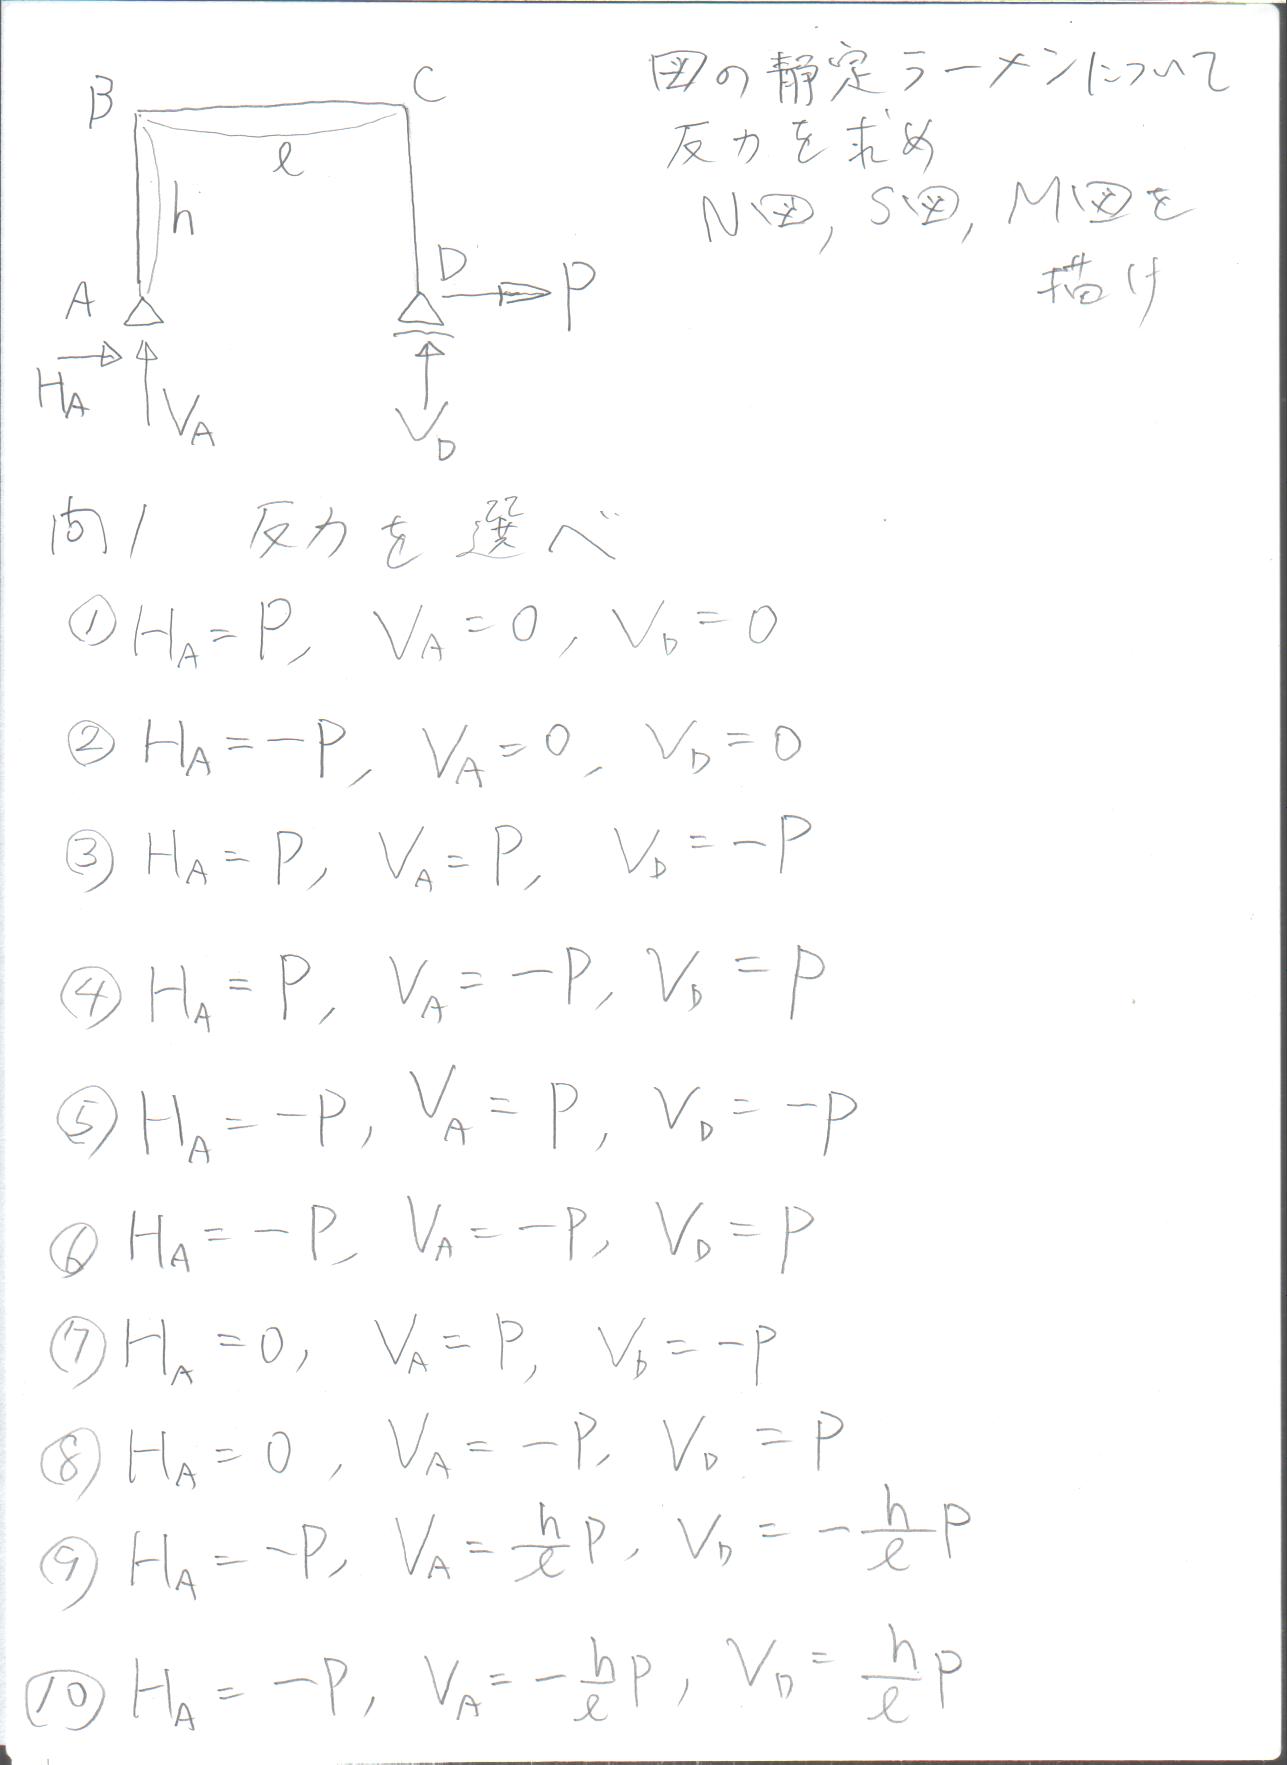 図の静定ラーメンについて
反力を求め
N図, S図, M図を
描け
B C
l
h
A D P
H_A V_A V_D
問1 反力を選べ
① H_A = P, V_A = 0, V_D = 0
② H_A = -P, V_A = 0, V_D = 0
③ H_A = P, V_A = P, V_D = -P
④ H_A = P, V_A = -P, V_D = P
⑤ H_A = -P, V_A = P, V_D = -P
⑥ H_A = -P, V_A = -P, V_D = P
⑦ H_A = 0, V_A = P, V_D = -P
⑧ H_A = 0, V_A = -P, V_D = P
⑨ H_A = -P, V_A = h/l P, V_D = -h/l P
⑩ H_A = -P, V_A = -h/l P, V_D = h/l P